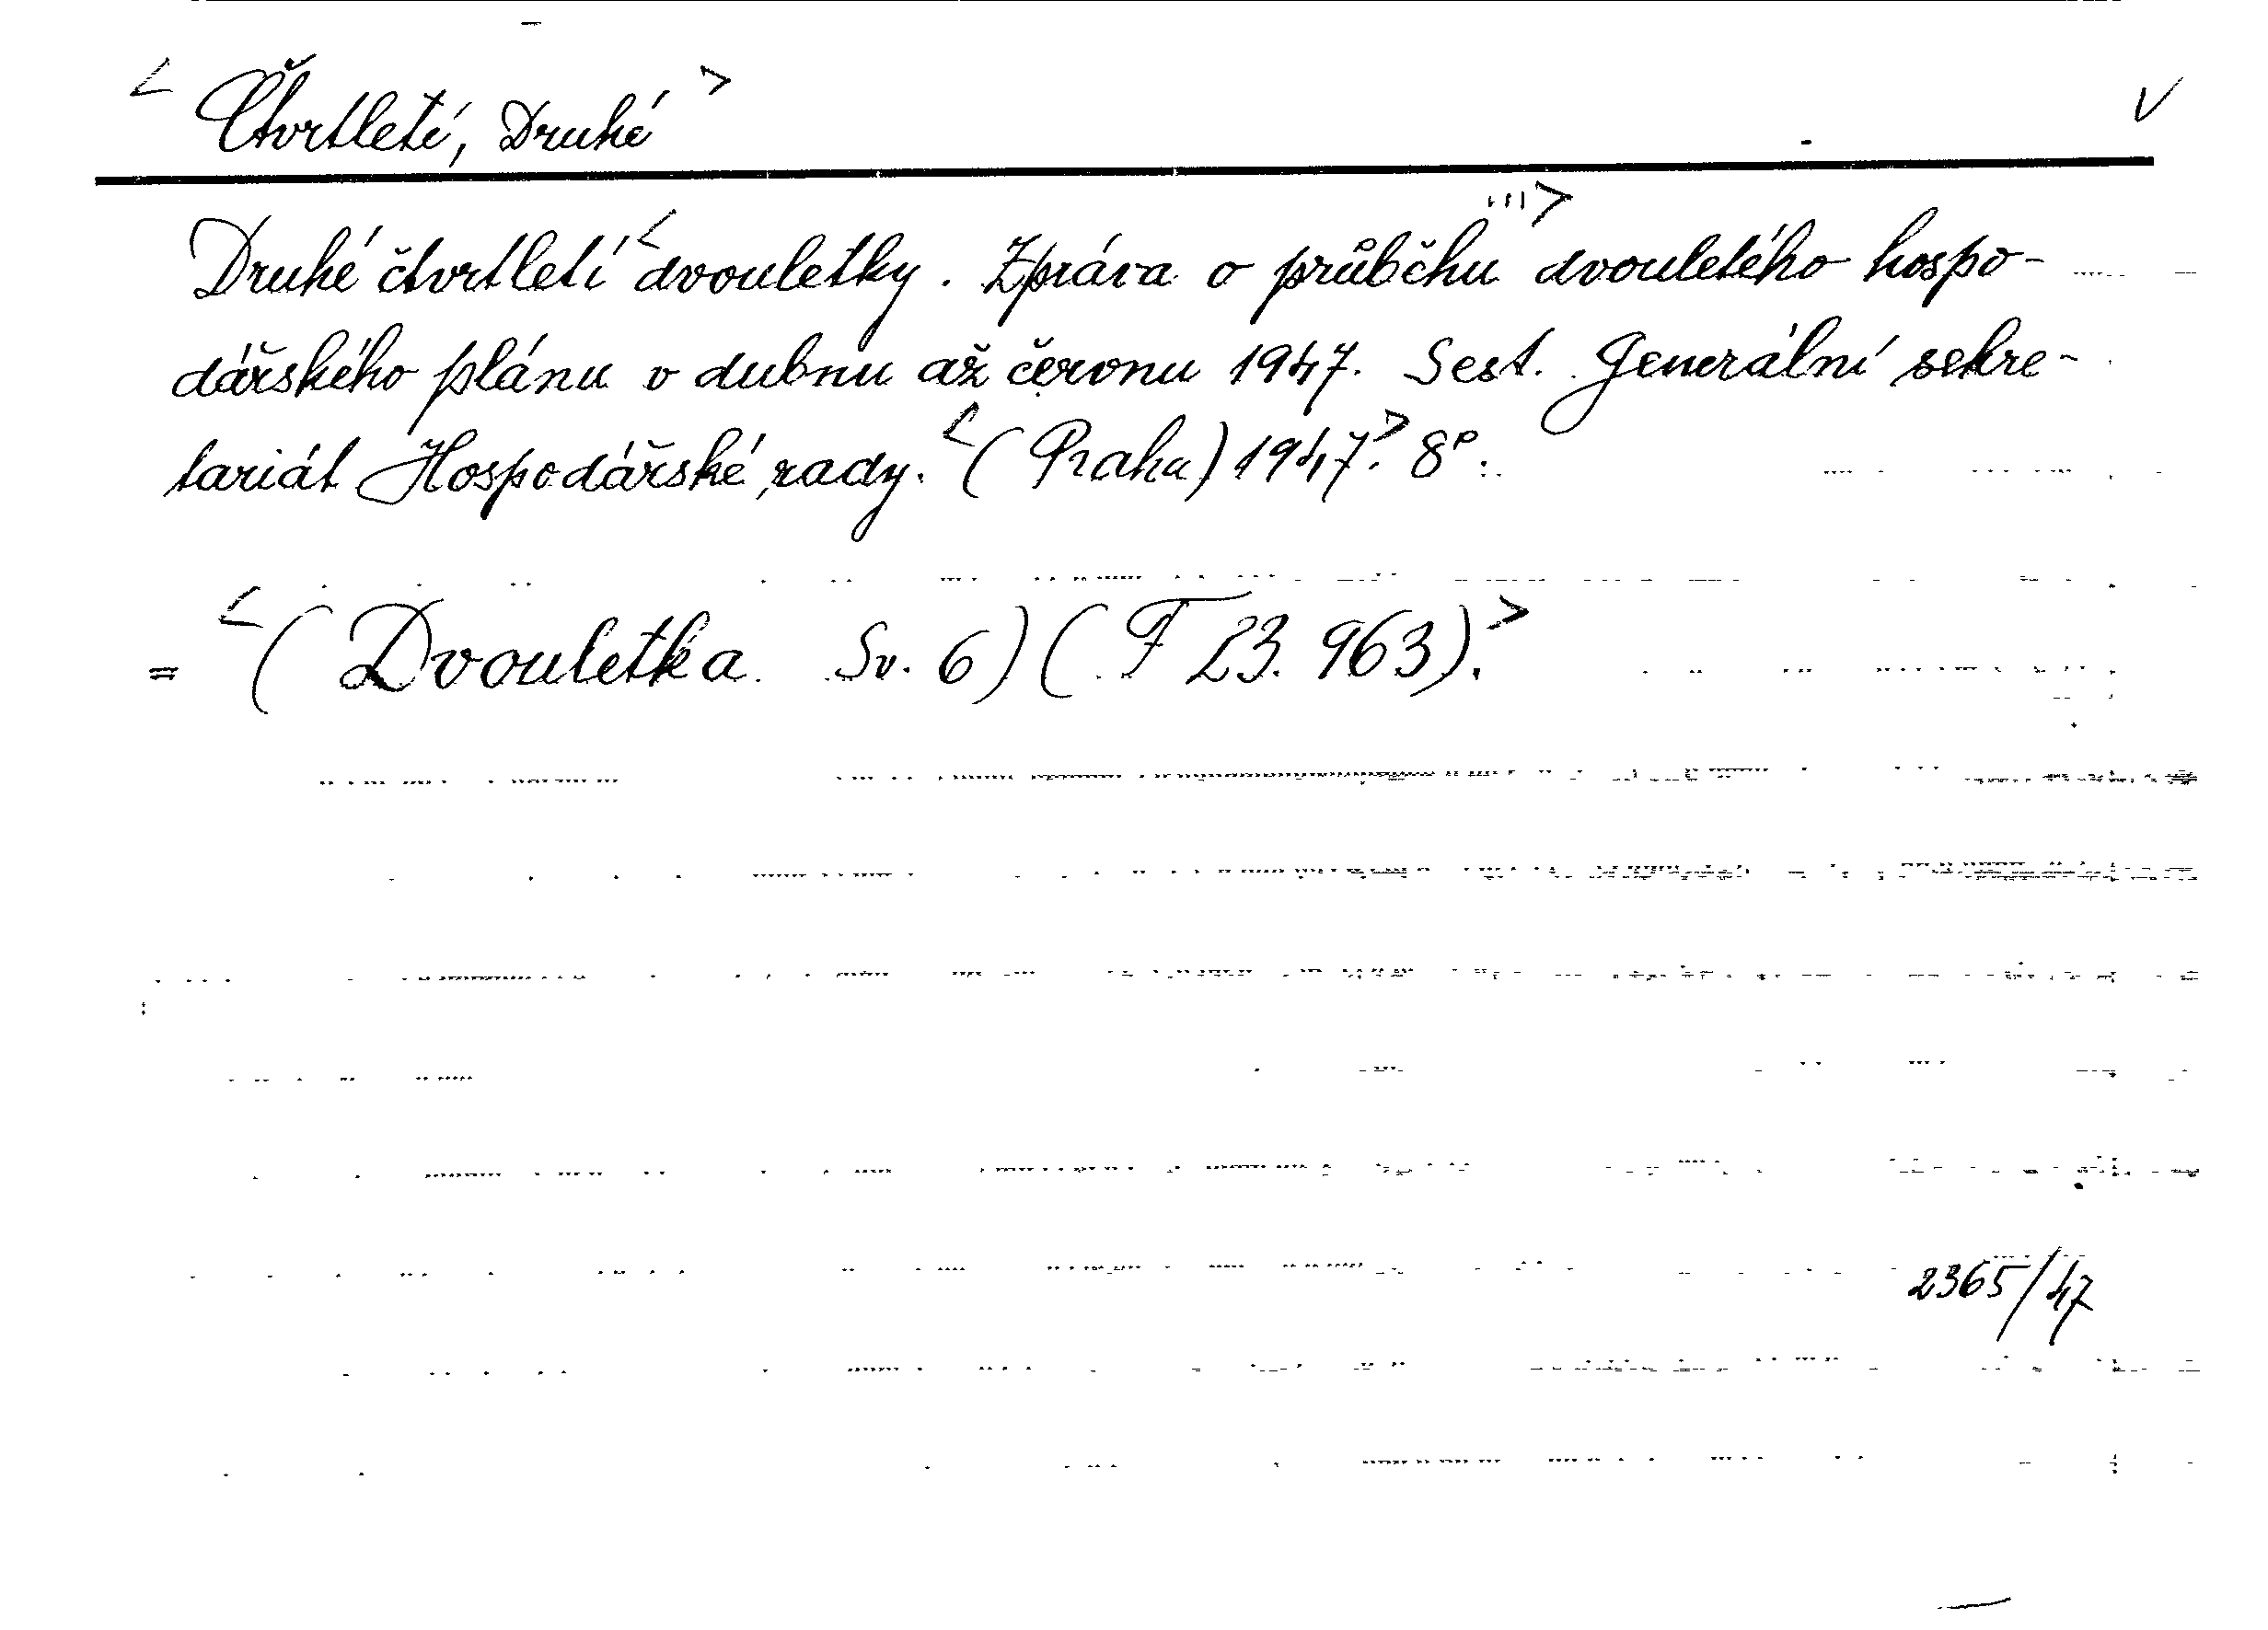 < Čtvrtletí, Druhé > V
Druhé čtvrtletí < dvouletky. Zpráva o průběhu ...> dvouletého hospo-
dářského plánu v dubnu až červnu 1947. Sest. Generální sekre-
tariát Hospodářské rady. < (Praha) 1947. > 8°.
= < (Dvouletka. Sv. 6) (F 23.963). >
2365/47